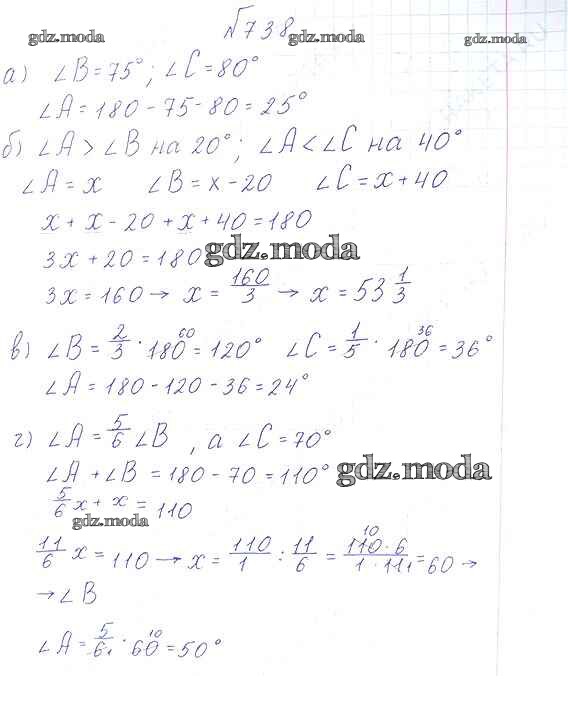 №738
gdz.moda gdz.moda gdz.moda
а) ∠B = 75°; ∠C = 80°
∠A = 180 - 75 - 80 = 25°
б) ∠A > ∠B на 20°; ∠A < ∠C на 40°
∠A = x ∠B = x - 20 ∠C = x + 40
x + x - 20 + x + 40 = 180
3x + 20 = 180 gdz.moda
3x = 160 → x = 160/3 → x = 53 1/3
в) ∠B = 2/3 · 180 60 = 120° ∠C = 1/5 · 180 36 = 36°
∠A = 180 - 120 - 36 = 24°
г) ∠A = 5/6 ∠B, а ∠C = 70°
∠A + ∠B = 180 - 70 = 110° gdz.moda
5/6 x + x = 110
gdz.moda
11/6 x = 110 → x = 110/1 : 11/6 = 10 110 · 6 / 1 · 11 1 = 60 →
→ ∠B
∠A = 5/6 1 · 60 10 = 50°
gdz.moda gdz.moda gdz.moda